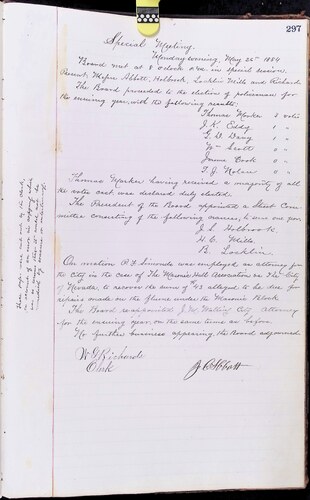 297
Special Meeting.
Monday evening, May 26th 1884
Board met at 8 o'clock P.M. in special session.
Present, Messrs Abbott, Holbrook, Locklin, Mills and Richards
The Board proceeded to the election of policeman for
the ensuing year, with the following results:
Thomas Marker 2 votes
J. K. Eddy 1 "
G. W. Davy 1 "
Wm Scott 1 "
James Cook 0 "
T. J. Nolan 0 "
Thomas Marker having received a majority of all
the votes cast, was declared duly elected.
The President of the Board appointed a Street Com-
mittee consisting of the following names, to serve one year
J. L. Holbrook,
H. C. Mills
B. Locklin,
On motion P. T. Simonds was employed as attorney for
the City in the case of The Masonic Hall Association vs The City
of Nevada, to recover the sum of $43 alleged to be due for
repairs made on the flume under the Masonic Block
The Board reappointed J. M. Walling City Attorney
for the ensuing year, on the same terms as before.
No further business appearing, the Board adjourned.
W. D. Richards
Clerk
J. C. Abbott